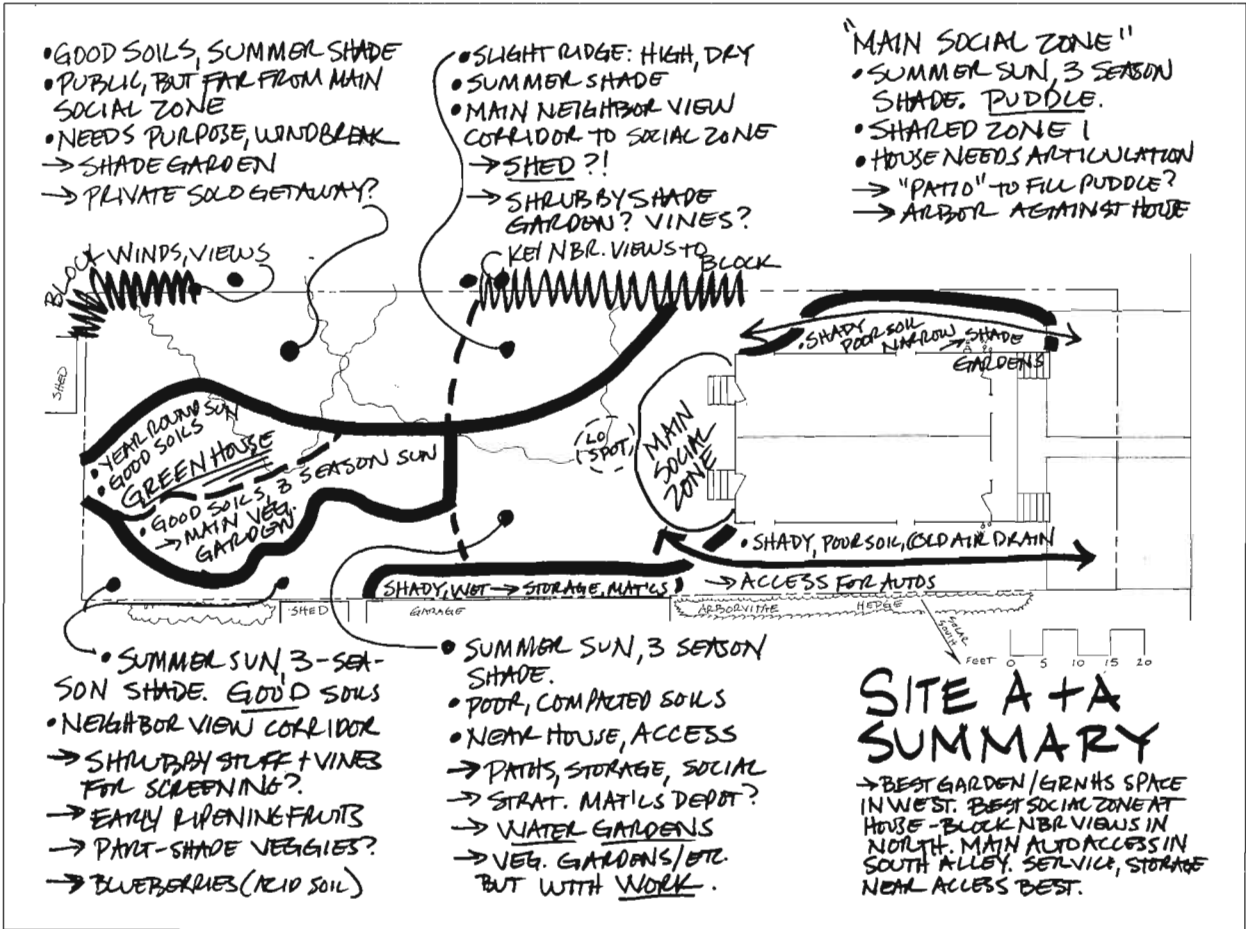 • GOOD SOILS, SUMMER SHADE
• PUBLIC, BUT FAR FROM MAIN
SOCIAL ZONE
• NEEDS PURPOSE, WINDBREAK
→ SHADE GARDEN
→ PRIVATE SOLO GETAWAY?
• SLIGHT RIDGE: HIGH, DRY
• SUMMER SHADE
• MAIN NEIGHBOR VIEW
CORRIDOR TO SOCIAL ZONE
→ SHED ?!
→ SHRUBBY SHADE
GARDEN? VINES?
"MAIN SOCIAL ZONE"
• SUMMER SUN, 3 SEASON
SHADE. PUDDLE.
• SHARED ZONE 1
• HOUSE NEEDS ARTICULATION
→ "PATIO" TO FILL PUDDLE?
→ ARBOR AGAINST HOUSE
BLOCK WINDS, VIEWS
KEY NBR. VIEWS TO
BLOCK
SHED
• SHADY
POOR SOIL
NARROW → SHADE
GARDENS
• YEAR ROUND SUN
• GOOD SOILS
GREENHOUSE
• GOOD SOILS, 3 SEASON SUN
→ MAIN VEG.
GARDEN
LO
SPOT
MAIN
SOCIAL
ZONE
• SHADY, POOR SOIL, COLD AIR DRAIN
→ ACCESS FOR AUTOS
SHADY, WET → STORAGE, MAT'LS
SHED
GARAGE
ARBORVITAE HEDGE
SOLAR
SOUTH
FEET 0 5 10 15 20
• SUMMER SUN, 3-SEA-
SON SHADE. GOOD SOILS
• NEIGHBOR VIEW CORRIDOR
→ SHRUBBY STUFF + VINES
FOR SCREENING?
→ EARLY RIPENING FRUITS
→ PART-SHADE VEGGIES?
→ BLUEBERRIES (ACID SOIL)
• SUMMER SUN, 3 SEASON
SHADE.
• POOR, COMPACTED SOILS
• NEAR HOUSE, ACCESS
→ PATHS, STORAGE, SOCIAL
→ STRAT. MAT'LS DEPOT?
→ WATER GARDENS
→ VEG. GARDENS/ETC.
BUT WITH WORK.
SITE A+A
SUMMARY
→ BEST GARDEN/GRNHS SPACE
IN WEST. BEST SOCIAL ZONE AT
HOUSE - BLOCK NBR VIEWS IN
NORTH. MAIN AUTO ACCESS IN
SOUTH ALLEY. SERVICE, STORAGE
NEAR ACCESS BEST.